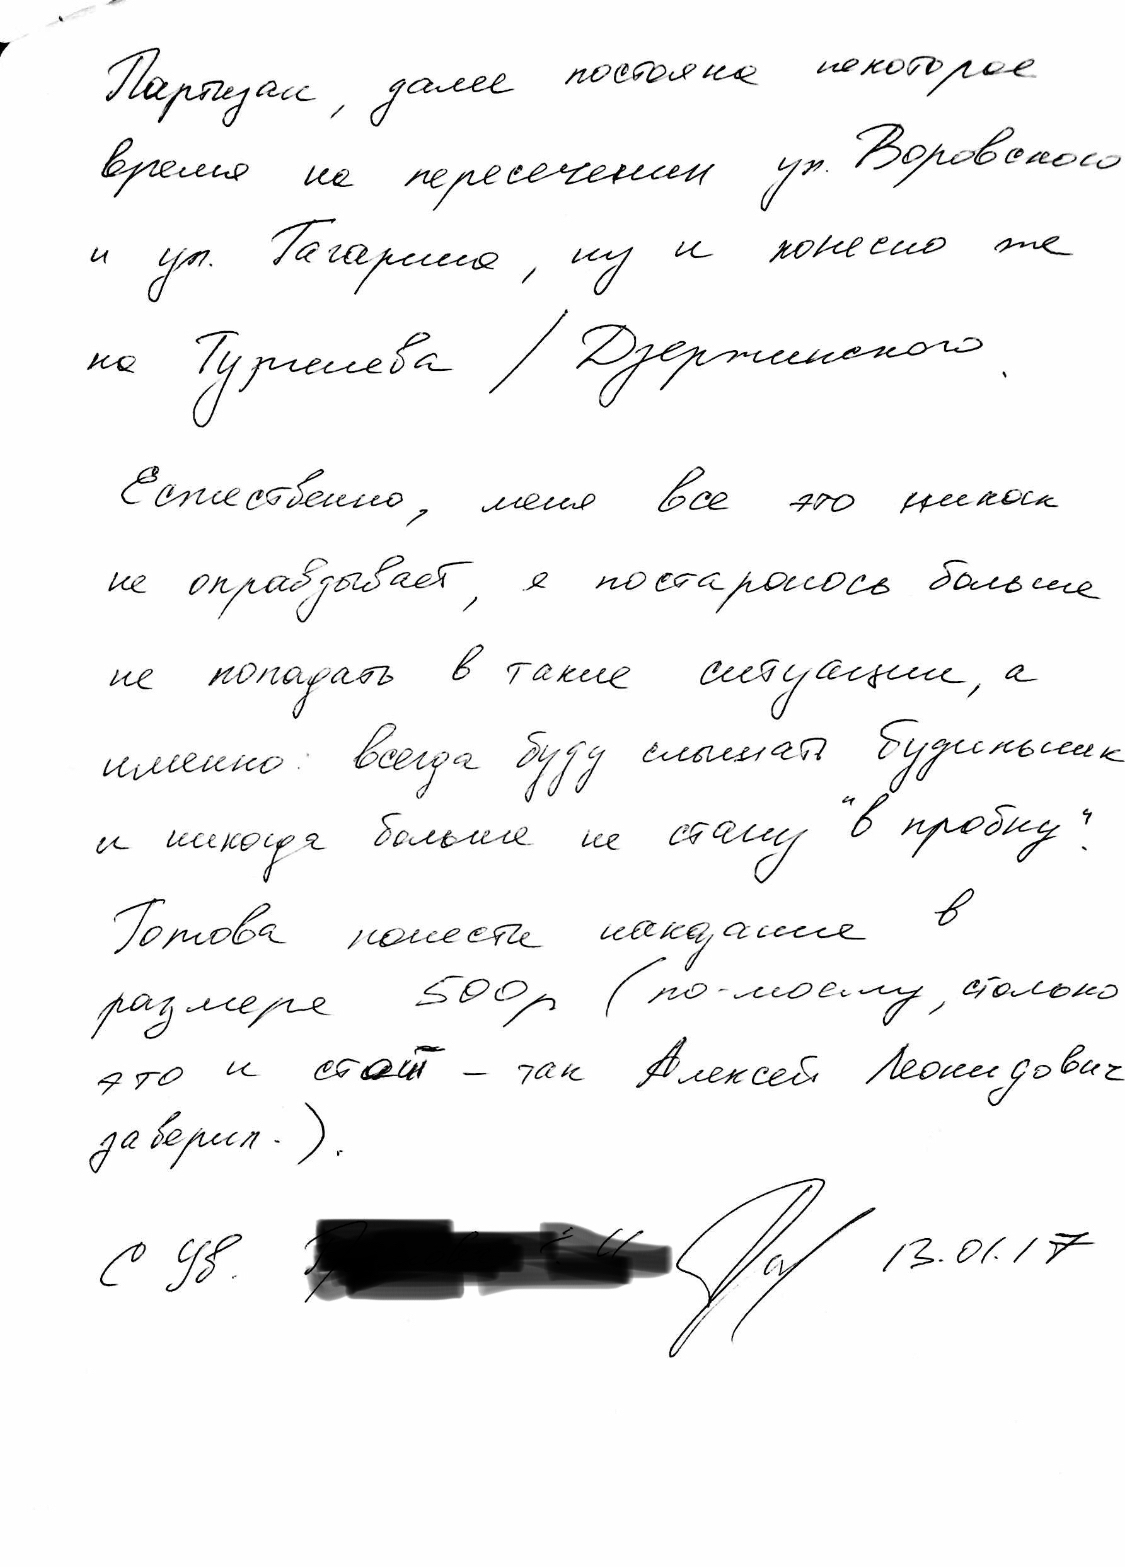 Партизан, далее постояна некоторое
время на пересечении ул. Воровского
и ул. Гагарина, ну и конесно же
на Тургенева / Дзержинского.
Естественно, меня все это никак
не оправдывает, я постараюсь больше
не попадать в такие ситуации, а
именно: всегда буду слышать будильник
и никогда больше не стану "в пробку".
Готова понести наказание в
размере 500р (по-моему, столько
это и стоит – так Алексей Леонидович
заверил.).
С Ув. 13.01.17